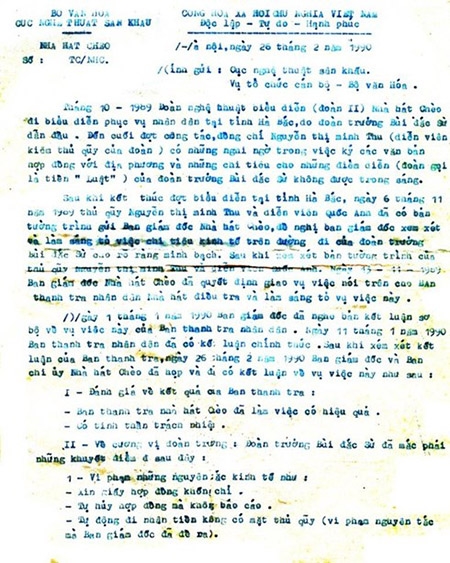 BỘ VĂN HÓA
CỤC NGHỆ THUẬT SÂN KHẤU
CỘNG HÒA XÃ HỘI CHỦ NGHĨA VIỆT NAM
Độc lập - Tự do - Hạnh phúc
NHÀ HÁT CHÈO
Số : TC/NHC.
/-/à nội, ngày 26 tháng 2 năm 1990
/(ính gửi : Cục nghệ thuật sân khấu.
Vụ tổ chức cán bộ - Bộ văn Hóa .
Tháng 10 - 1989 Đoàn nghệ thuật biểu diễn (đoàn II) Nhà hát Chèo
đi biểu diễn phục vụ nhân dân tại tỉnh Hà Bắc, do đoàn trưởng Bùi đắc Sừ
dẫn đầu . Đến cuối đợt công tác, đồng chí Nguyễn thị minh Thu (diễn viên
kiêm thủ qũy của đoàn ) có những nghi ngờ trong việc ký các văn bản
hợp đồng với địa phương và những chi tiêu cho những điểm diễn (đoàn gọi
là tiền " Luật" ) của đoàn trưởng Bùi đắc Sừ không được trong sáng.
Sau khi kết thúc đợt biểu diễn tại tỉnh Hà Bắc, ngày 6 tháng 11
năm 1989 thủ qũy Nguyễn thị minh Thu và diễn viên Quốc Anh đã có bản
tường trình gửi Ban giám đốc Nhà hát Chèo, đề nghị ban giám đốc xem xét
và làm sáng tỏ việc chi tiêu kinh tế trên đường đi của đoàn trưởng
Bùi đắc Sừ cho rõ ràng minh bạch. Sau khi xem xét bản tường trình của
thủ qũy Nguyễn thị minh Thu và diễn viên Quốc Anh. Ngày 11 1989.
Ban giám đốc Nhà hát Chèo đã quyết định giao vụ việc nói trên cho BAN
thanh tra nhân dân Nhà hát điều tra và làm sáng tỏ vụ việc này .
/)/gày 1 tháng 1 năm 1990 Ban giám đốc đã nghe ban kết luận sơ
bộ về vụ việc này của Ban thanh tra nhân dân . Ngày 11 tháng 1 năm 1990
Ban thanh tra nhân dân đã có kết luận chính thức . Sau khi xem xét kết
luận của Ban thanh tra, ngày 26 tháng 2 năm 1990 Ban giám đốc và Ban
chi ủy Nhà hát Chèo đã họp và đi có kết luận về vụ việc này như sau :
I - Đánh giá về kết quả của Ban thanh tra :
- Ban thanh tra nhà hát Chèo đã làm việc có hiệu quả .
- Có tinh thần trách nhiệm .
II - Về cương vị đoàn trưởng : Đoàn trưởng Bùi đắc Sừ đã mắc phải
những khuyết điểm ở sau đây :
1 - Vi phạm những nguyên tắc kinh tế như :
- Xin giấy hợp đồng khống chỉ .
- Tự hủy hợp đồng mà không báo cáo .
- Tự động đi nhận tiền không có mặt thủ qũy (vi phạm nguyên tắc
mà Ban giám đốc đã đề ra).